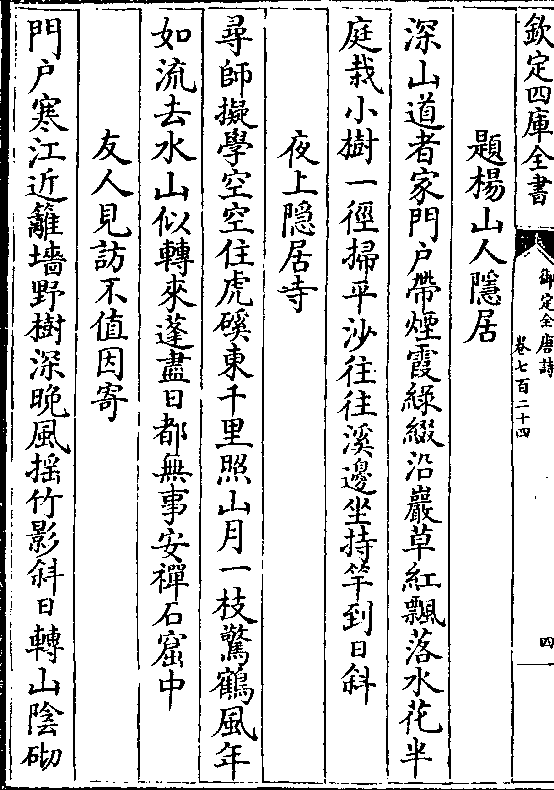 欽定四庫全書
御定全唐詩
卷七百二十四
四
題楊山人隱居
深山道者家門户帶煙霞緑綴沿巖草紅飄落水花半
庭栽小樹一徑掃平沙往往溪邊坐持竿到日斜
夜上隱居寺
尋師擬學空空住虎磎東千里照山月一枝驚鶴風年
如流去水山似轉來蓬盡日都無事安禪石窟中
友人見訪不值因寄
門户寒江近籬墻野樹深晚風揺竹影斜日轉山陰砌